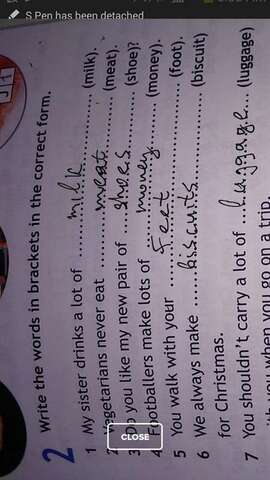 S Pen has been detached
2 Write the words in brackets in the correct form.
1 My sister drinks a lot of ...milk... (milk).
2 Vegetarians never eat ...meat... (meat).
3 Do you like my new pair of ...shoes... (shoe)?
4 Footballers make lots of ...money... (money).
5 You walk with your ...Feet... (foot).
6 We always make ...biscuits... (biscuit)
for Christmas.
7 You shouldn't carry a lot of ...luggage... (luggage)
with you when you go on a trip.
CLOSE